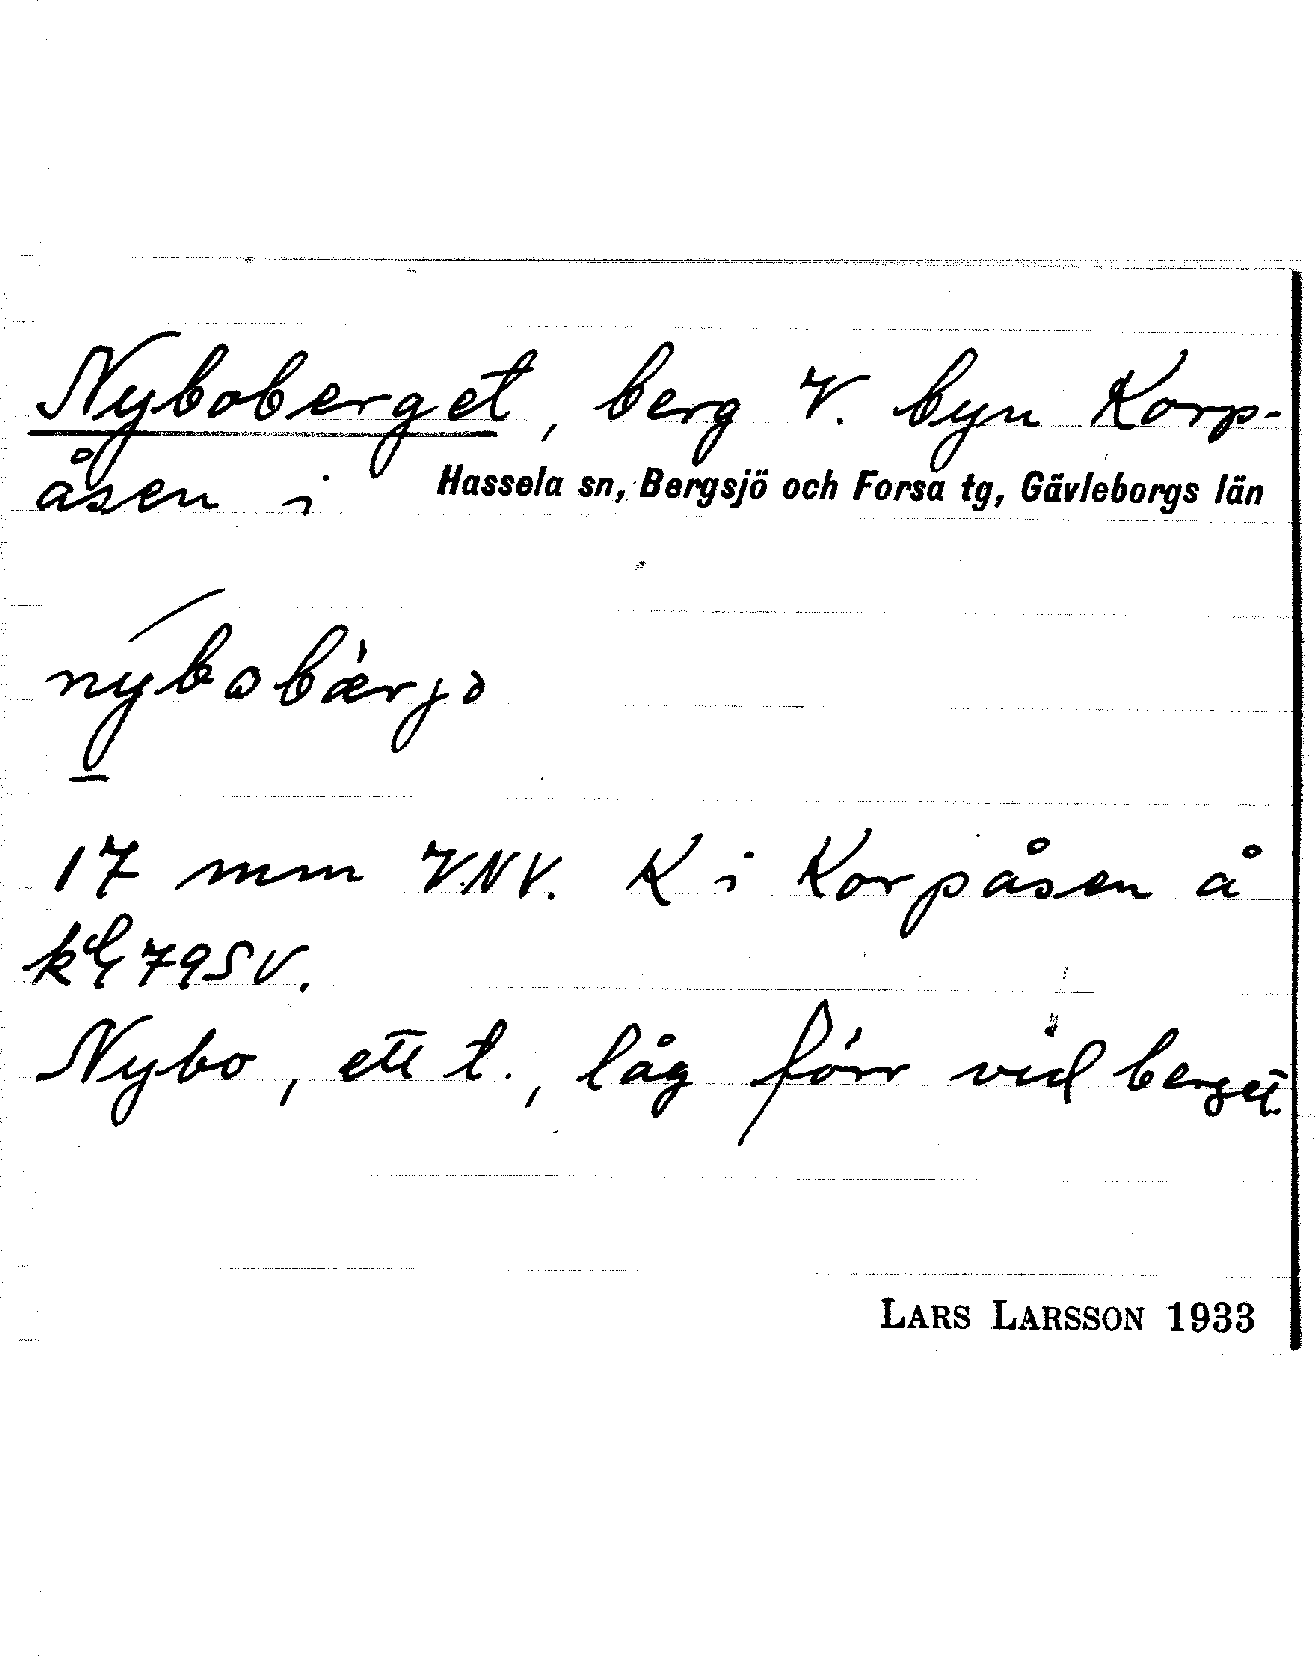 Nyboberget, berg V. byn Korp-
åsen i Hassela sn, Bergsjö och Forsa tg, Gävleborgs län
17 mm VNV. K i Korpåsen å
79SV.
Nybo, ett t., låg förr vid berget.
LARS LARSSON 1933